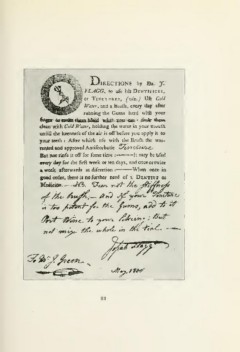 DIRECTIONS by Mr. J.
FLAGG, to use his DENTIFRICE,
or TINCTURE, (viz.) Use Cold
Water, and a Brush, every day after
rubbing the Gums hard with your
finger
clear with Cold Water, holding the water in your mouth
until the keenness of the air is off before you apply to
your teeth: After which use with the Brush the war-
ranted and approved Antiscorbutic Tincture
But not
every day for the first week or ten days, and once or twice
a week afterwards as direction When once in
good order, there is no further need of a DENTIST or
Medicine N.B. Fear not the Stiffness
of the brush, and If your Tincture
is too potent for the Gums, add to it
Port Wine to your likeing; But
not mix the whole in the vial.
Josiah Flagg
To Mr J Green
May 1800